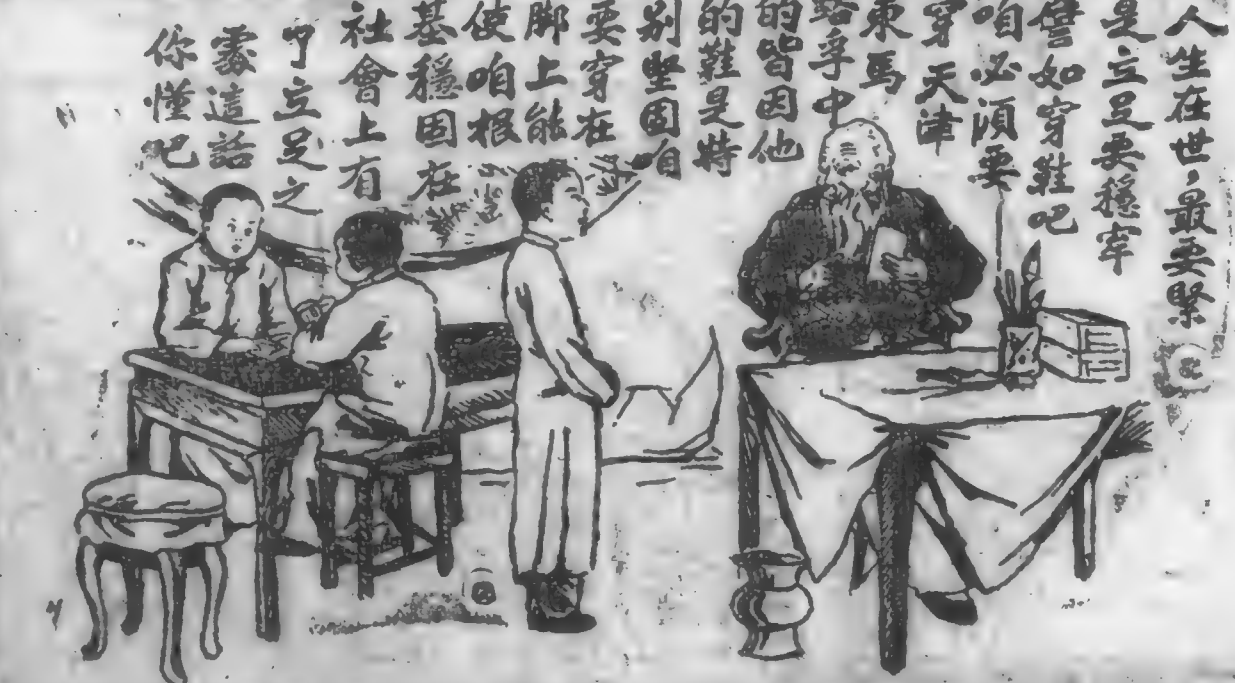 人生在世,最要緊
是立足要穩牢
譬如穿鞋吧
咱必須要
穿天津
東馬
路孚中
的皆因他
的鞋是特
别堅固自
要穿在
脚上能
使咱根
基穩固在
社會上有
了立足之
處這話
你懂吧